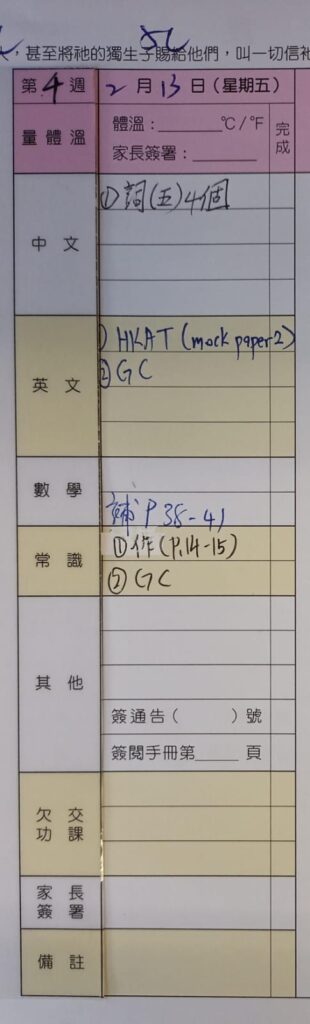 ，甚至將祂的獨生子賜給他們，叫一切信祂
第4週 2月13日（星期五）
量體溫 體溫：______℃/℉ 完成
家長簽署：______
中文 ①詞(五)4個
英文 ① HKAT (mock paper 2)
② GC
數學 補 P 38-41
常識 ①作(P.14-15)
② GC
其他
簽通告（ ）號
簽閱手冊第____頁
欠交功課
家長簽署
備註